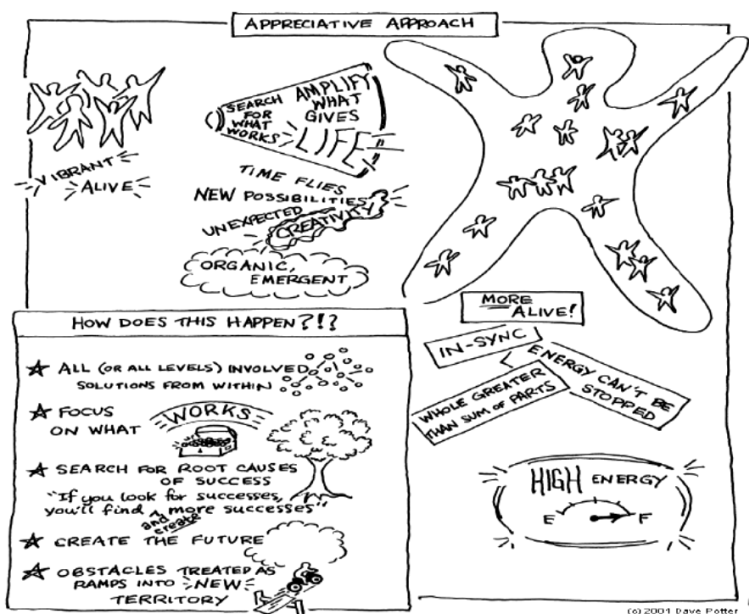 APPRECIATIVE APPROACH
VIBRANT
ALIVE
SEARCH
FOR
WHAT
WORKS
AMPLIFY
WHAT
GIVES
LIFE
TIME FLIES
NEW POSSIBILITIES
UNEXPECTED
CREATIVITY
ORGANIC,
EMERGENT
MORE
ALIVE!
IN-SYNC
ENERGY CAN'T BE
STOPPED
WHOLE GREATER
THAN SUM OF PARTS
HIGH ENERGY
E F
HOW DOES THIS HAPPEN?!?
ALL (OR ALL LEVELS) INVOLVED
SOLUTIONS FROM WITHIN
FOCUS
ON WHAT
WORKS
SEARCH FOR ROOT CAUSES
OF SUCCESS
"If you look for successes,
you'll find ^ more successes"
and
create
CREATE THE FUTURE
OBSTACLES TREATED AS
RAMPS INTO NEW
TERRITORY
(c) 2001 Dave Potter